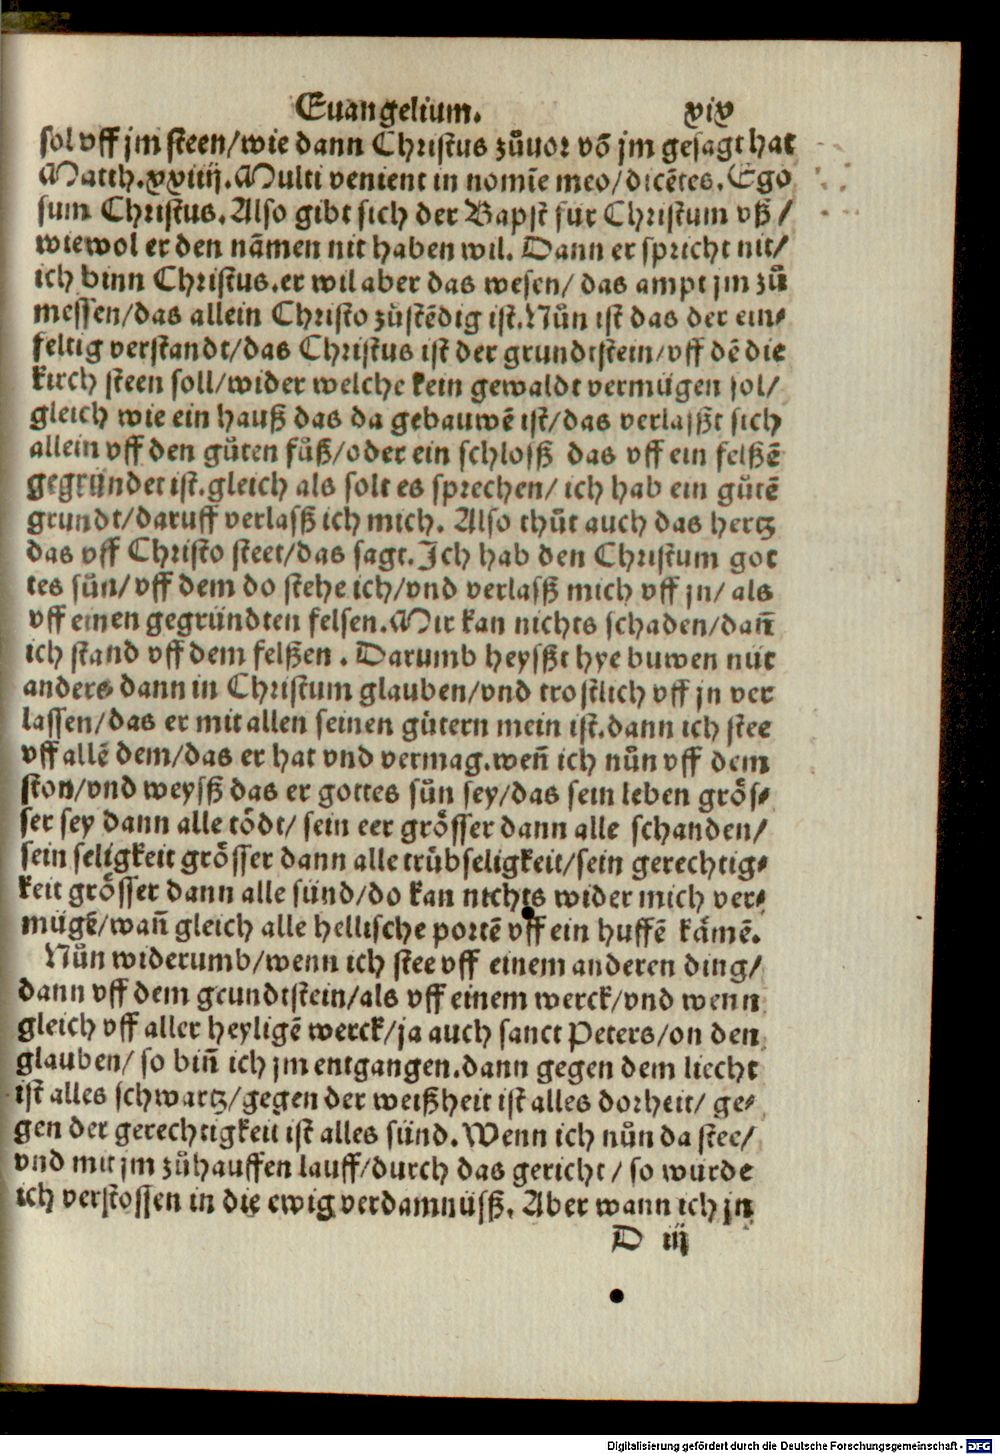 Euangelium. xix
sol vff jm steen/wie dann Christus zůuor võ jm gesagt hat
Matth.xxiiij.Multi venient in nomīe meo/dicētes.Ego
sum Christus. Also gibt sich der Bapst fur Christum vß/
wiewol er den nãmen nit haben wil. Dann er spricht nit/
ich binn Christus.er wil aber das wesen/ das ampt jm zů
messen/das allein Christo zůstēdig ist.Nůn ist das der ein⸗
feltig verstandt/das Christus ist der grundtstein/vff dē die
kirch steen soll/wider welche kein gewaldt vermügen sol/
gleich wie ein hauß das da gebauwē ist/das verlasßt sich
allein vff den gůten fůß/oder ein schlosß das vff ein felßē
gegründet ist.gleich als solt es sprechen/ ich hab ein gůtē
grundt/daruff verlasß ich mich. Also thůt auch das hertz
das vff Christo steet/das sagt.Ich hab den Christum got
tes sůn/ vff dem do stehe ich/vnd verlasß mich vff jn/ als
vff einen gegründten felsen.Mir kan nichts schaden/dañ
ich stand vff dem felßen . Darumb heysßt hye buwen nüt
anders dann in Christum glauben/vnd trostlich vff jn ver
lassen/das er mit allen seinen gütern mein ist.dann ich stee
vff allē dem/das er hat vnd vermag.weñ ich nůn vff dem
ston/vnd weysß das er gottes sůn sey/das sein leben grös⸗
ser sey dann alle tödt/ sein eer grösser dann alle schanden/
sein seligkeit grösser dann alle trübseligkeit/sein gerechtig⸗
keit grösser dann alle sünd/do kan nichts wider mich ver⸗
mügē/wañ gleich alle hellische portē vff ein huffē kämē.
Nůn widerumb/wenn ich stee vff einem anderen ding/
dann vff dem grundtstein/als vff einem werck/vnd wenn
gleich vff aller heyligē werck/ja auch sanct Peters/on den
glauben/ so biñ ich jm entgangen.dann gegen dem liecht
ist alles schwartz/gegen der weißheit ist alles dorheit/ ge⸗
gen der gerechtigkeit ist alles sünd.Wenn ich nůn da stee/
vnd mit jm zůhauffen lauff/durch das gericht/ so wurde
ich verstossen in die ewig verdamnüsß. Aber wann ich jn
D iij
Digitalisierung gefördert durch die Deutsche Forschungsgemeinschaft - DFG